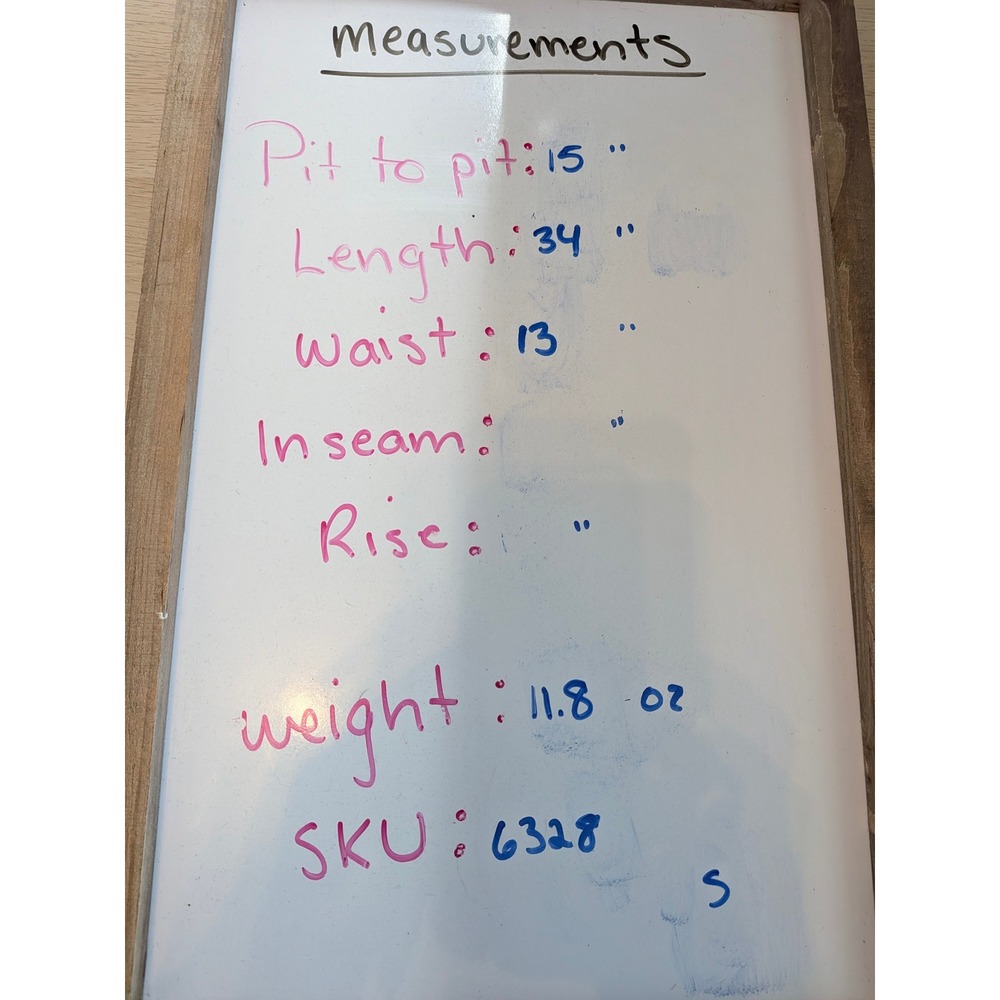 measurements
Pit to pit: 15 "
Length: 34 "
Waist: 13 "
Inseam: "
Rise: "
weight: 11.8 oz
SKU: 6328
S